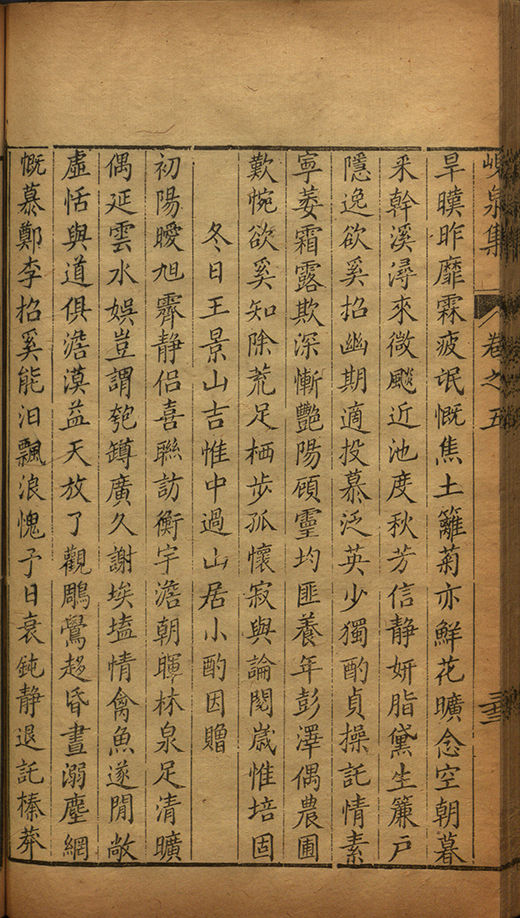 峴泉集 卷之五 二三
旱暵昨靡霖疲氓慨焦土籬菊亦鮮花曠念空朝暮
釆幹溪潯來微颸近池度秋芳信静妍脂黛生簾戸
隱逸欲奚招幽期適投慕泛英少獨酌貞操託情素
寧萎霜露欺深慚艷陽頋靈均匪養年彭澤偶農圃
歎惋欲奚知除荒足栖步孤懷寂與論閱歲惟培固
冬日王景山吉惟中過山居小酌因贈
初陽曖旭霽静侣喜聯訪衡宇澹朝暉林泉足清曠
偶延雲水娛豈謂匏罇廣久謝埃壒情禽魚遂閒敞
虛恬與道俱澹漠益天放了觀鵰鷽趍昏晝溺塵網
慨慕鄭李招奚能汨飄浪愧予日衰鈍静退託榛莽